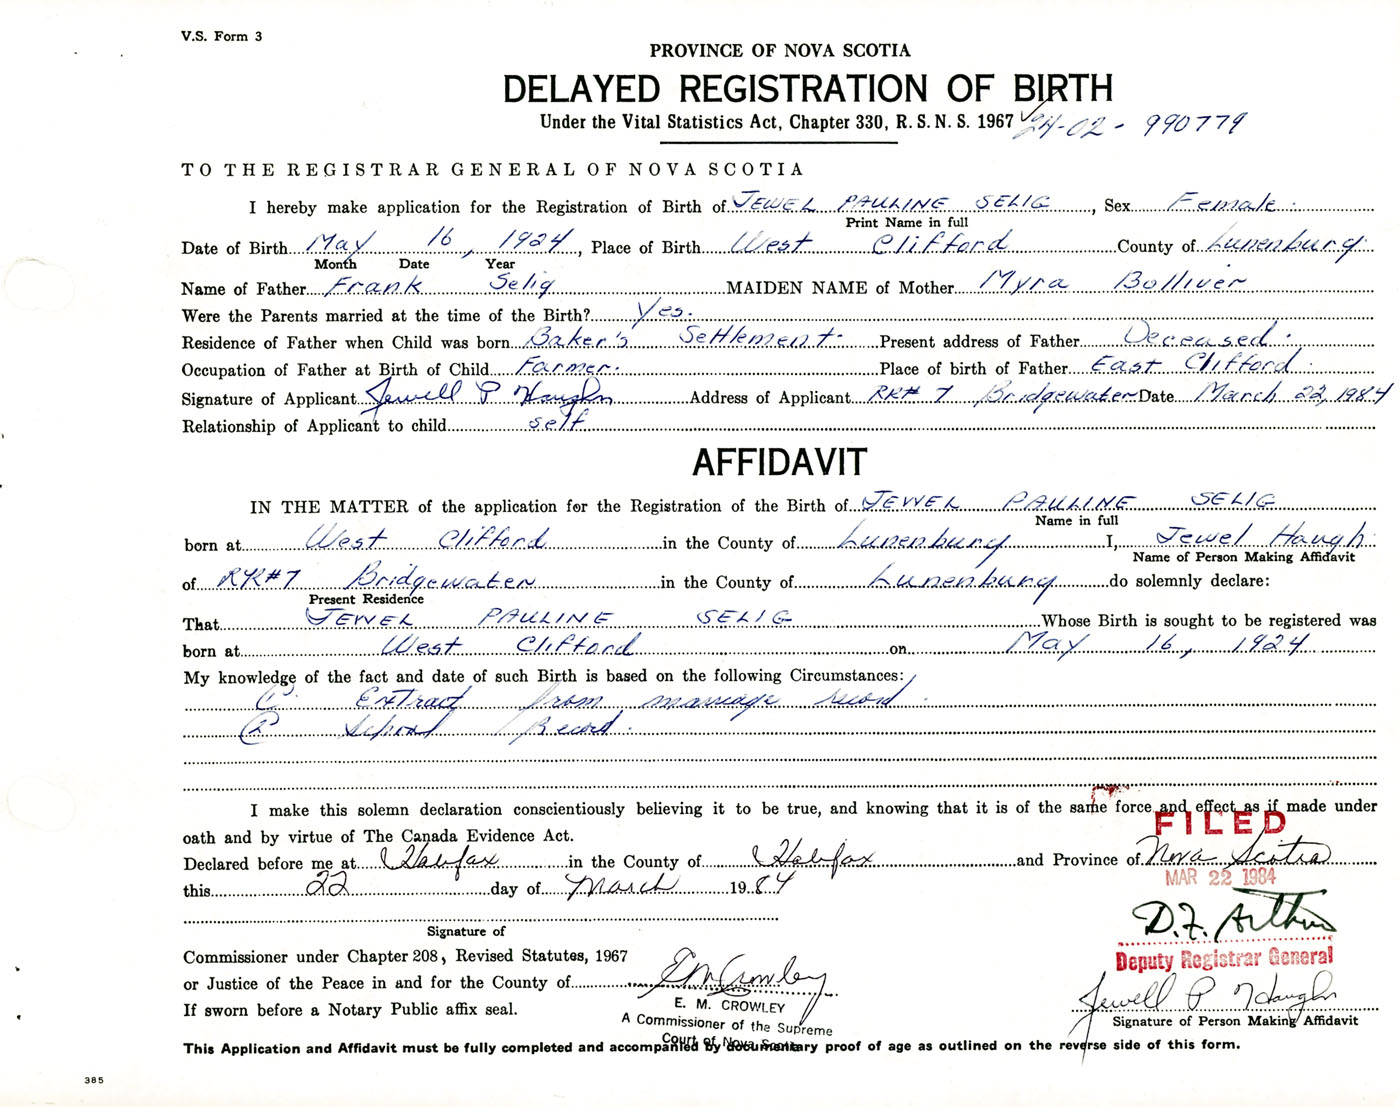 V.S. Form 3
PROVINCE OF NOVA SCOTIA
DELAYED REGISTRATION OF BIRTH
Under the Vital Statistics Act, Chapter 330, R. S. N. S. 1967 24-02-990779
TO THE REGISTRAR GENERAL OF NOVA SCOTIA
I hereby make application for the Registration of Birth of JEWEL PAULINE SELIG, Sex Female.
Print Name in full
Date of Birth May 16, 1924, Place of Birth West Clifford County of Lunenburg.
Month Date Year
Name of Father Frank Selig MAIDEN NAME of Mother Myra Bolliver
Were the Parents married at the time of the Birth? Yes.
Residence of Father when Child was born Baker's Settlement. Present address of Father Deceased.
Occupation of Father at Birth of Child Farmer. Place of birth of Father East Clifford.
Signature of Applicant Jewell P Haughn Address of Applicant RR# 7 Bridgewater Date March 22, 1984
Relationship of Applicant to child self
AFFIDAVIT
IN THE MATTER of the application for the Registration of the Birth of JEWEL PAULINE SELIG
Name in full
born at West Clifford in the County of Lunenburg I, Jewel Haugh
Name of Person Making Affidavit
of RR#7 Bridgewater in the County of Lunenburg do solemnly declare:
Present Residence
That JEWEL PAULINE SELIG Whose Birth is sought to be registered was
born at West Clifford on May 16, 1924
My knowledge of the fact and date of such Birth is based on the following Circumstances:
(1) Extract from marriage record.
(2) School Record.
I make this solemn declaration conscientiously believing it to be true, and knowing that it is of the same force and effect as if made under
oath and by virtue of The Canada Evidence Act.
FILED
Declared before me at Halifax in the County of Halifax and Province of Nova Scotia
MAR 22 1984
this 22 day of March 1984
D.F. Arthur
Signature of
Deputy Registrar General
Commissioner under Chapter 208, Revised Statutes, 1967
or Justice of the Peace in and for the County of EM Crowley
If sworn before a Notary Public affix seal.
E. M. CROWLEY
A Commissioner of the Supreme
Court of Nova Scotia
Jewell P Haughn
Signature of Person Making Affidavit
This Application and Affidavit must be fully completed and accompanied by documentary proof of age as outlined on the reverse side of this form.
385